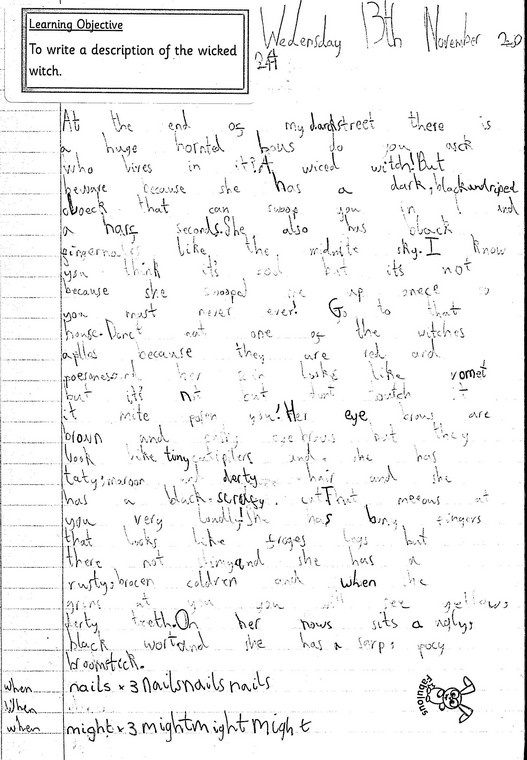 Learning Objective
To write a description of the wicked
witch.
Wednesday 13th November 20
24
At the end of my darckstreet there is
a huge horntd hous do you asck
who lives in it?A wiced witch!But
beware because she has a dark,blackandriped
that can swoop you in 1 and
a harf seconds.She also has black
fingernails like the midnite sky.I know
you think it's but it's not
because she swooped me up onece so
you must never ever! Go to that
house.Donct eat one of the witches
aplles because they are red and
her skin looks like vomet
but it's not but dont toutch it
it mite you!Her eye brows are
brown and eyebrows but they
look like tiny and she has
taty,maroon and derty hair and she
has a black, cat That meeous at
you very loudly!She has bony fingers
that looks like froges legs but
there not and she has a
rusty,brocen coldren and when she
grins at you you will see yellow,
derty treeth.On her nows sits a ugly,
black wort and she has a sarp, pocy
broomstick.
when nails x3 nails nails nails
when
when might x3 might might might
fabulous